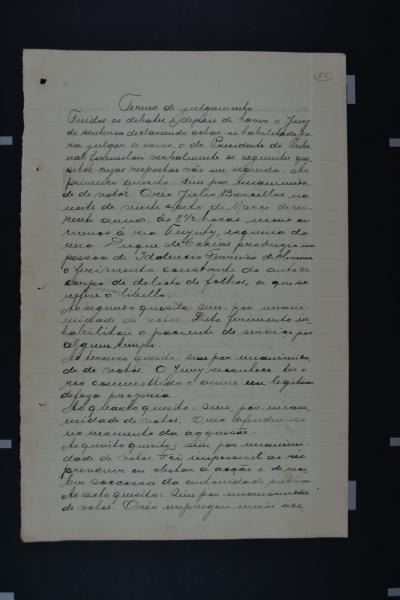 86
Termo de julgamento
Findos os debates e depois de haver o Jury
de sentença declarado achar-se habilitado pa
ra julgar a causa, o dr. Presidente do Tribu
nal formulou verbalmente os seguintes que
sitos, cujas respostas vão em seguida: ao
primeiro quesito: sim por unanimida
de de votos. O réo Julio Barcellos, na
noite de vinte e oito de Março do cor
rente anno, ás 8 1/2 horas mais ou
menos á rua Tuyuty, esquina da
rua Duque de Caxias produziu na
pessoa de Idalencio Ferreira de
o ferimento constante do auto de
corpo de delicto de folhas, a que se
refere o libello.
Ao segundo quesito: sim, por unani
midade de votos. Dito ferimento in
habilitou o paciente de serviço por
algum tempo.
Ao terceiro quesito: sim por unanimida
de de votos. O Jury reconhece ter o
réo commettido o crime em legitima
defeza propria.
Ao quarto quesito: sim, por unani
midade de votos. O réo defendeu-se
no momento da aggressão.
Ao quinto quesito: sim por unanimi
dade de votos. Foi impossivel ao réo
prevenir ou obstar a acção e de
soccorro da autoridade publica
Ao sexto quesito: sim por unanimidade
de votos. O réo empregou meios